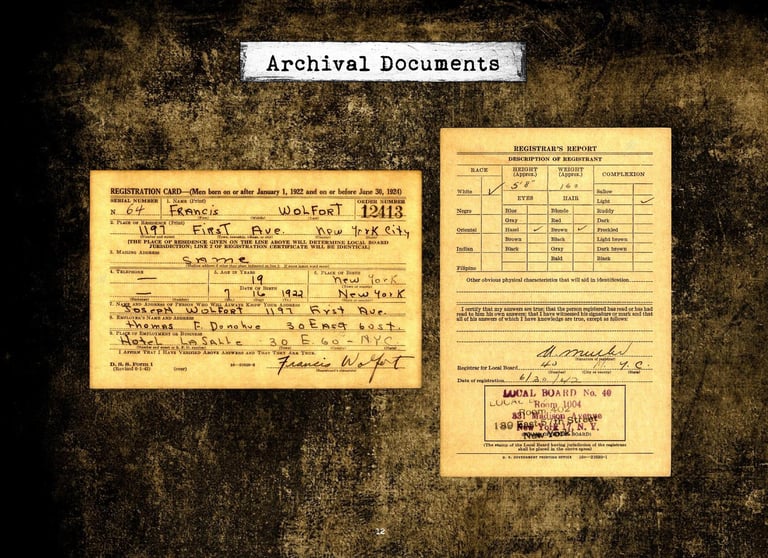 Archival Documents
REGISTRATION CARD—(Men born on or after January 1, 1922 and on or before June 30, 1924)
SERIAL NUMBER 1. NAME (Print) ORDER NUMBER
N 64 FRANCIS WOLFORT 12413
(First) (Middle) (Last)
2. PLACE OF RESIDENCE (Print)
1197 FIRST AVE. NEW YORK CITY
[THE PLACE OF RESIDENCE GIVEN ON THE LINE ABOVE WILL DETERMINE LOCAL BOARD
JURISDICTION; LINE 2 OF REGISTRATION CERTIFICATE WILL BE IDENTICAL]
3. MAILING ADDRESS
SAME
4. TELEPHONE 5. AGE IN YEARS 6. PLACE OF BIRTH
— 19 New York
DATE OF BIRTH
— 7 16 1922 New York
7. NAME AND ADDRESS OF PERSON WHO WILL ALWAYS KNOW YOUR ADDRESS
Joseph Wolfort 1197 First Ave.
8. EMPLOYER'S NAME AND ADDRESS
Thomas F. Donohue 30 East 60 St.
9. PLACE OF EMPLOYMENT OR BUSINESS
Hotel LaSalle 30 E. 60 - NYC
I AFFIRM THAT I HAVE VERIFIED ABOVE ANSWERS AND THAT THEY ARE TRUE.
D. S. S. FORM 1
(Revised 6-1-42) (over) Francis Wolfort
REGISTRAR'S REPORT
DESCRIPTION OF REGISTRANT
RACE HEIGHT (Approx.) WEIGHT (Approx.) COMPLEXION
5'8" 160
White ✓ Sallow
EYES HAIR Light ✓
Negro Blue Blonde Ruddy
Gray Red Dark
Oriental Hazel ✓ Brown ✓ Freckled
Brown Black Light brown
Indian Black Gray Dark brown
Bald Black
Filipino
Other obvious physical characteristics that will aid in identification
I certify that my answers are true; that the person registered has read or has had
read to him his own answers; that I have witnessed his signature or mark and that
all of his answers of which I have knowledge are true, except as follows:
(Signature of registrar)
Registrar for Local Board 40 N. Y. C.
(Number) (City or county) (State)
Date of registration 6/30/42
LOCAL BOARD No. 40
Room 1004
Room 402
331 Madison Avenue
New York 17, N. Y.
New York
(The stamp of the Local Board having jurisdiction of the registrant
shall be placed in the above space)
U. S. GOVERNMENT PRINTING OFFICE
12